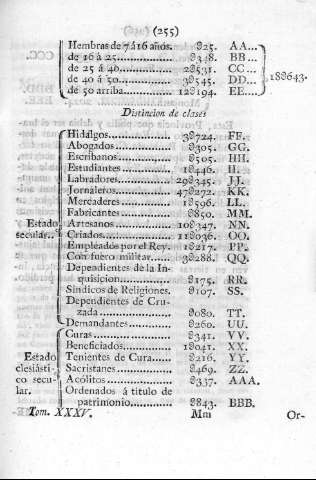 (255)
Hembras de 7 á 16 años. 9925. AA...
de 16 á 25............... 9348. BB...
de 25 á 40............... 29531. CC...
de 40 á 50............... 39545. DD...
de 50 arriba............ 129194. EE....
189643.
Distincion de clases
Hidalgos.................. 39724. FF.
Abogados................. 9305. GG.
Escribanos............... 9505. HH.
Estudiantes............. 19446. II.
Labradores............. 299345. JJ.
Jornaleros............... 479272. KK.
Mercaderes............. 19596. LL.
Fabricantes............. 9850. MM.
Artezanos............... 109347. NN.
Criados.................. 119036. OO.
Empleados por el Rey. 19217. PP.
Con fuero militar...... 39288. QQ.
Dependientes de la In-
quisicion............... 9175. RR.
Síndicos de Religiones. 9107. SS.
Dependientes de Cru-
zada..................... 9080. TT.
Demandantes............ 9260. UU.
Estado
secular..
Curas..................... 9341. VV.
Beneficiados............ 19041. XX.
Tenientes de Cura...... 9216. YY.
Sacristanes............... 9469. ZZ.
Acólitos................... 9337. AAA.
Ordenados á titulo de
patrimonio............ 9843. BBB.
Estado
eclesiásti-
co secu-
lar.
Tom. XXXV. Mm Or-